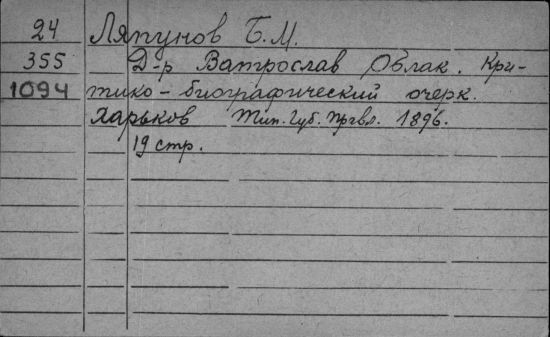 24 Ляпунов Б. М.
355 Д-р Ватрослав Облак. Кри-
1094 тико-биографический очерк.
Харьков Тип. Губ. Правл. 1896.
19 стр.